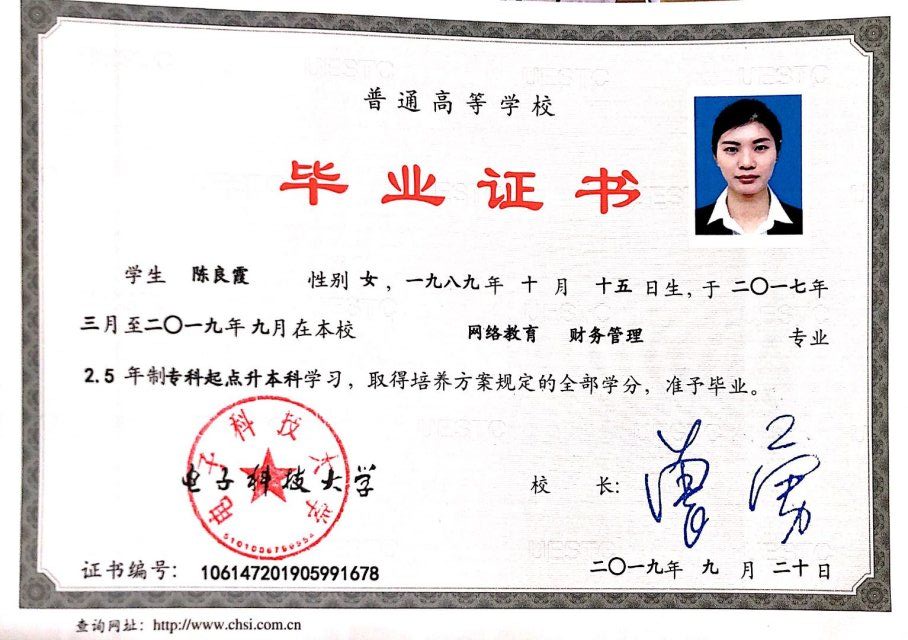 普通高等学校
毕业证书
学生 陈良霞 性别 女，一九八九年 十 月 十五 日生，于 二〇一七年
三月至二〇一九年 九月在本校 网络教育 财务管理 专业
2.5 年制专科起点升本科学习，取得培养方案规定的全部学分，准予毕业。
电子科技大学
电子科技大学
校 长：
证书编号： 106147201905991678
二〇一九年 九 月 二十日
查询网址：http://www.chsi.com.cn
UESTC